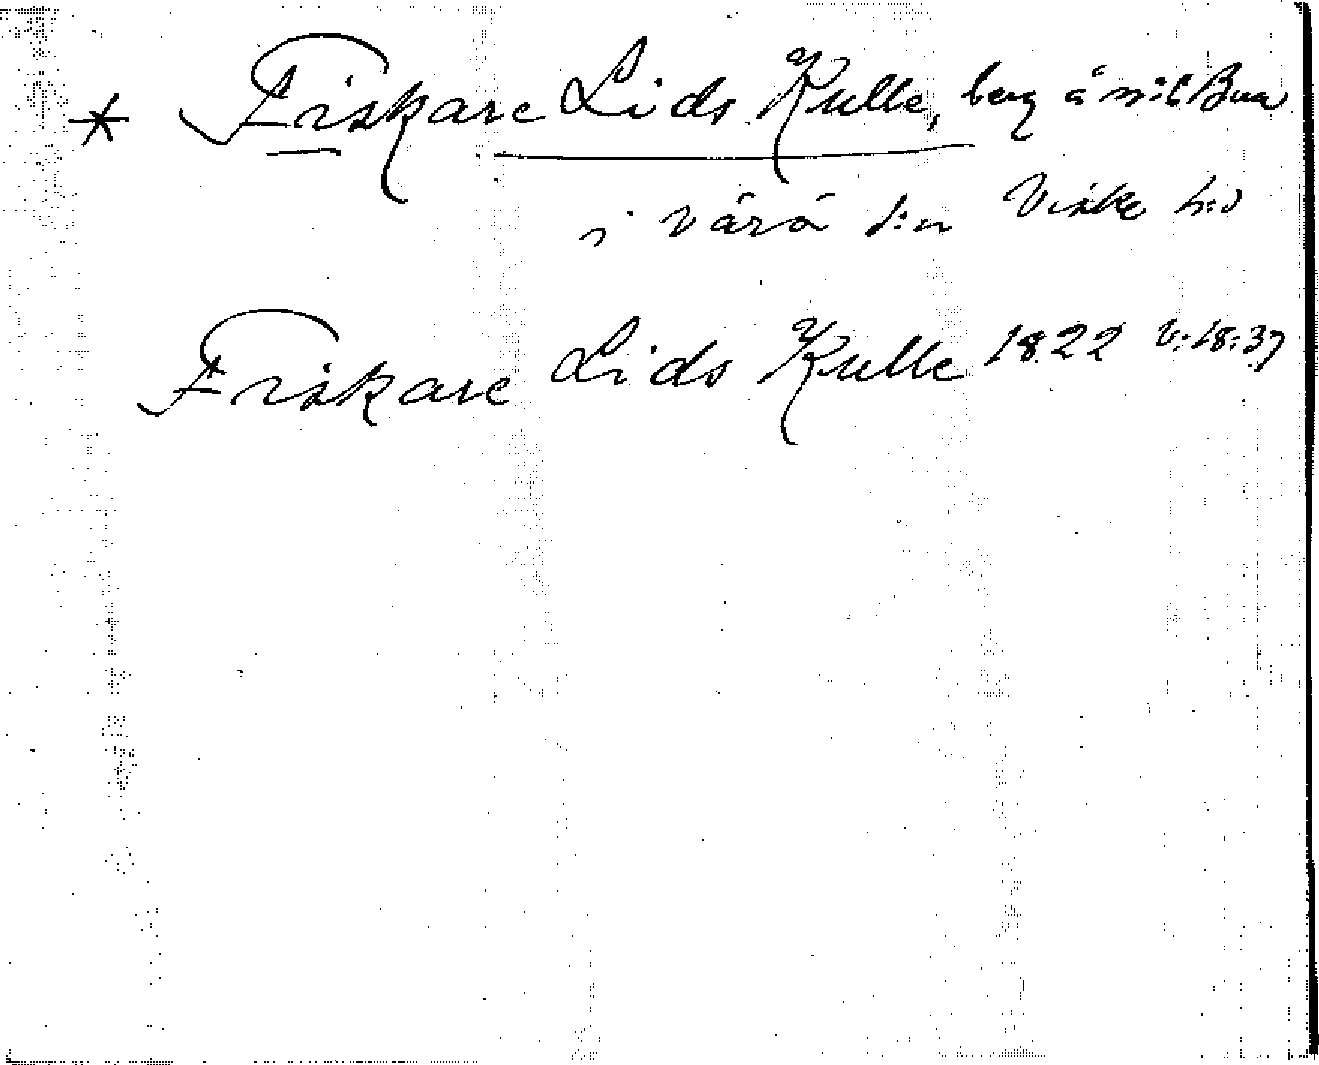 * Fiskare Lids Kulle, berg å n:o 1 Bua
i Värö s:n Viske h:d
Fiskare Lids Kulle 1822 V:18:37